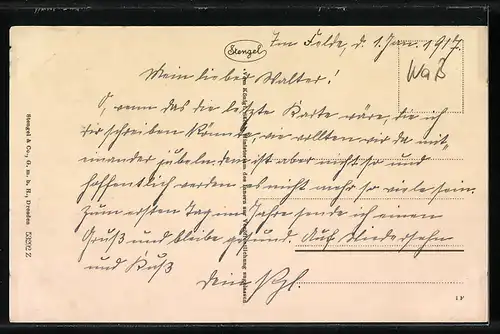 Stengel
Im Felde, d. 1. Jan. 1917.
WaB
Mein lieber Walter!
O, wenn das die letzte Karte wäre, die ich
Dir schreiben könnte, wie wollten wir da mit-
einander jubeln, denn ist aber nicht so und
hoffentlich werden es nicht mehr so viele sein.
Zum ersten Tag im Jahre sende ich einen
Gruß und bleibe gesund. Auf Wiedersehn
und Kuß
Dein
Stengel & Co., G. m. b. H., Dresden 53292
1 F